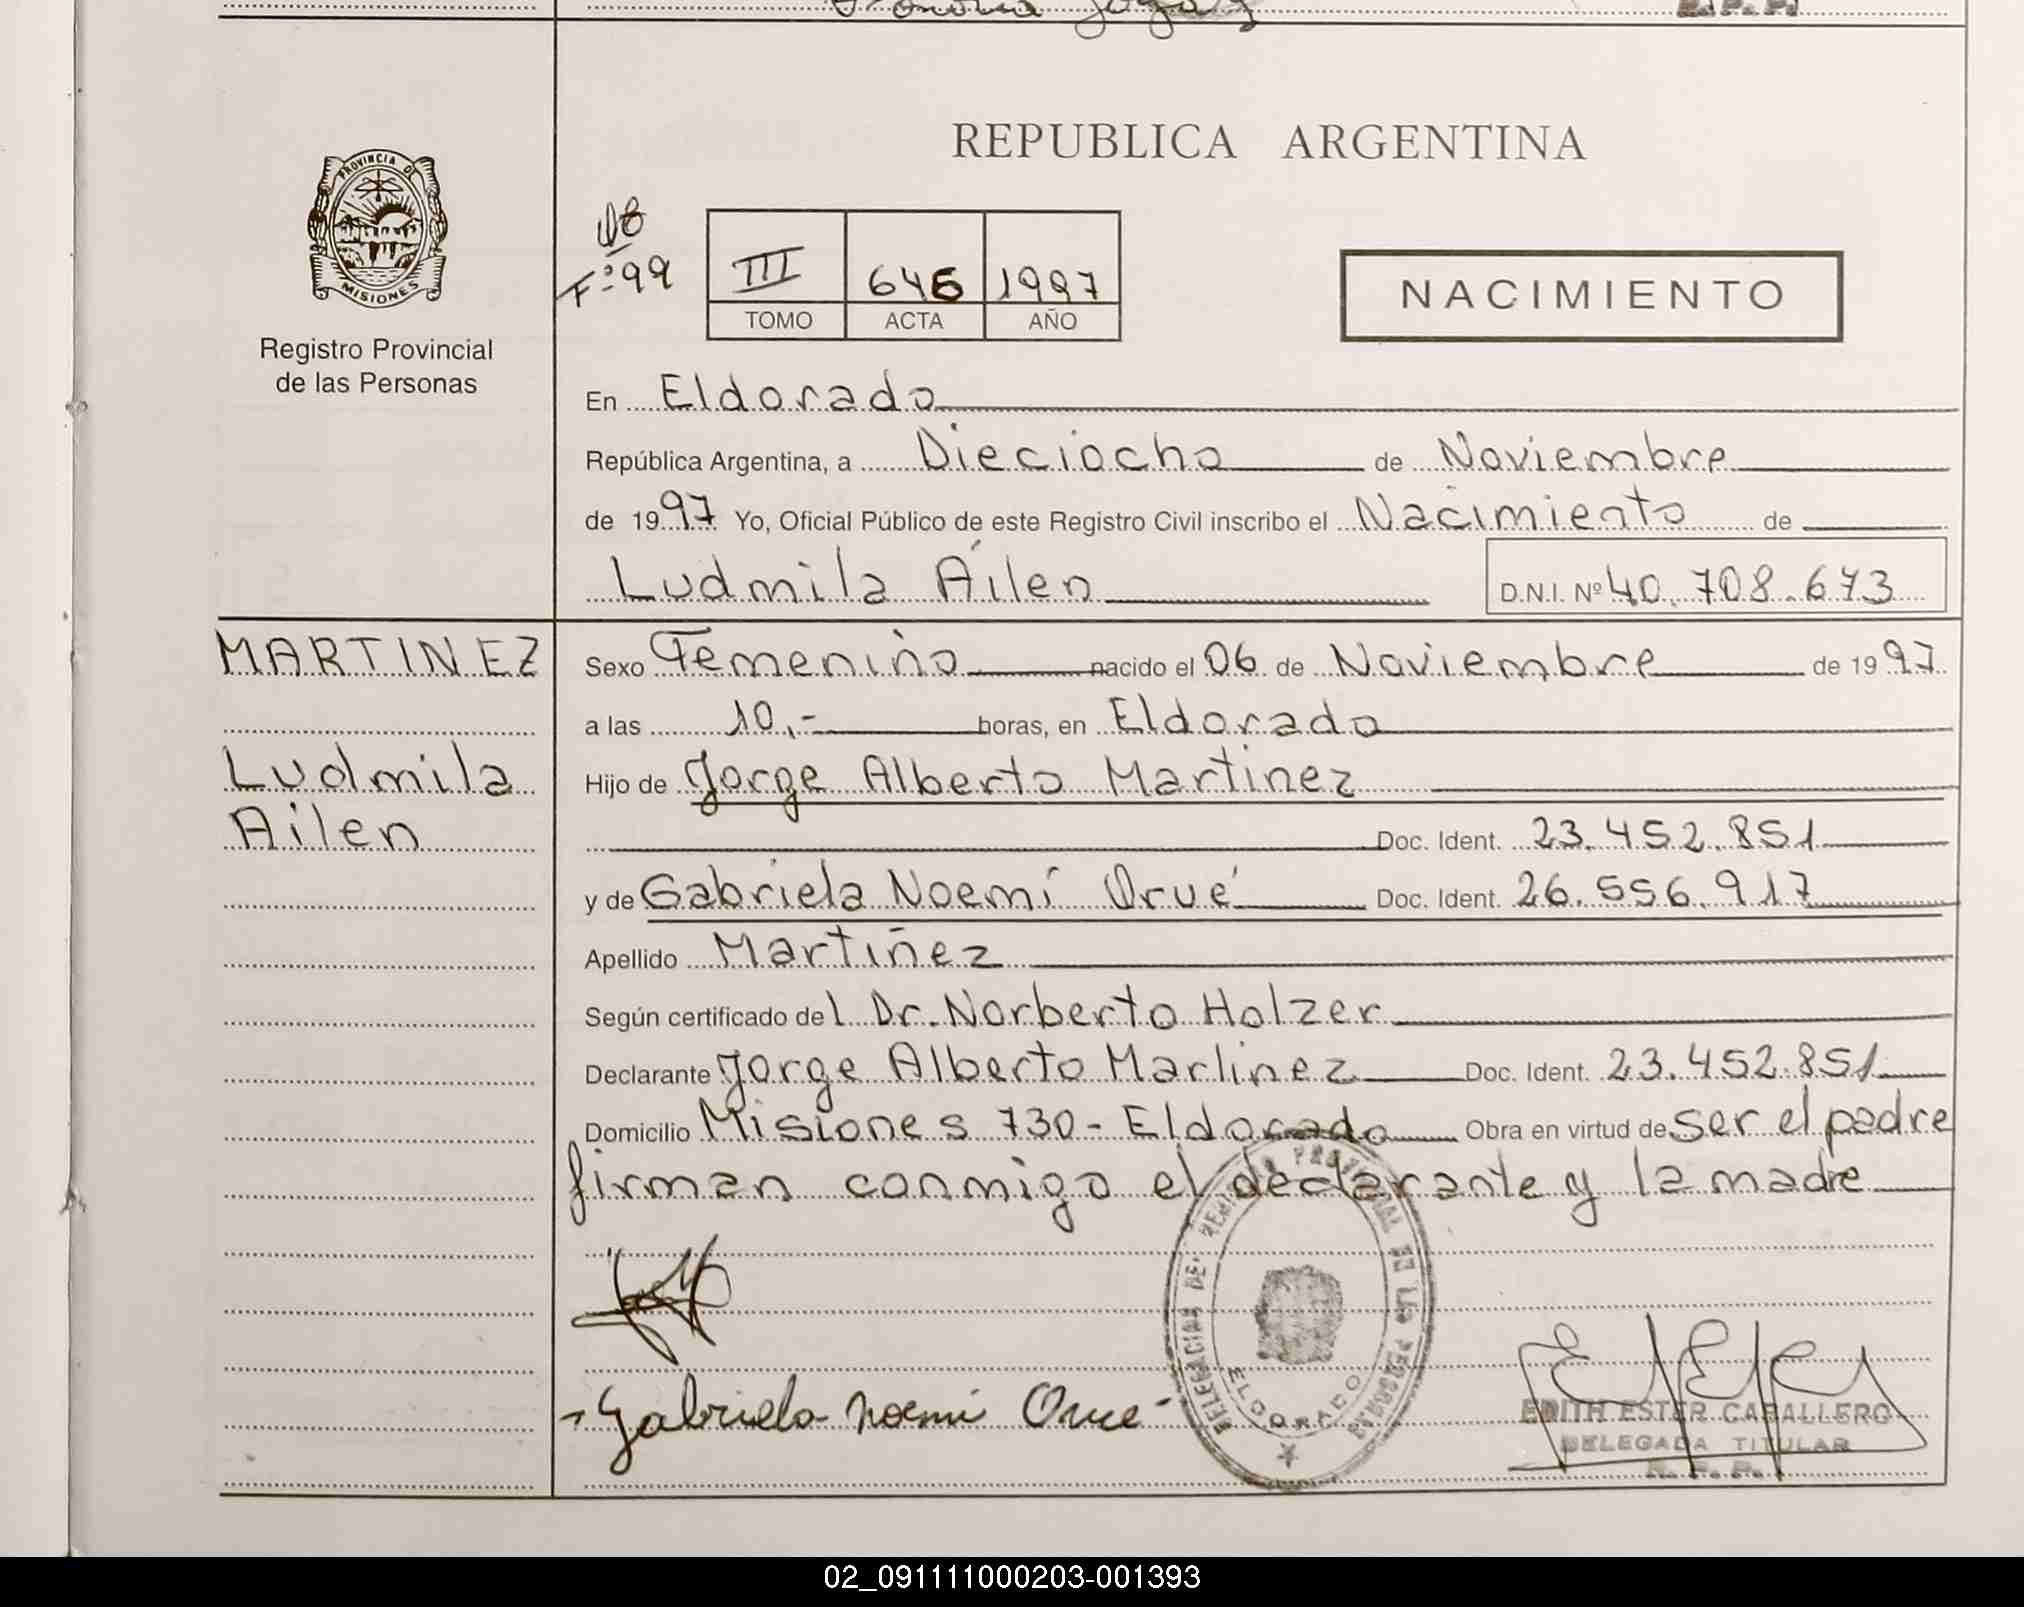 PROVINCIA DE
MISIONES
Registro Provincial
de las Personas
REPUBLICA ARGENTINA
F:º99
III 646 1997
TOMO ACTA AÑO
NACIMIENTO
En Eldorado
República Argentina, a Dieciocho de Noviembre
de 1997 Yo, Oficial Público de este Registro Civil inscribo el Nacimiento de
Ludmila Ailen D.N.I. Nº 40.708.673
MARTINEZ
Ludmila
Ailen
Sexo Femenino nacido el 06 de Noviembre de 1997
a las 10,- horas, en Eldorado
Hijo de Jorge Alberto Martinez
Doc. Ident. 23.452.851
y de Gabriela Noemí Orué Doc. Ident. 26.556.917
Apellido Martinez
Según certificado del Dr. Norberto Holzer
Declarante Jorge Alberto Martinez Doc. Ident. 23.452.851
Domicilio Misiones 730 - Eldorado Obra en virtud de ser el padre
firman conmigo el declarante y la madre
Gabriela Noemi Orue
ELDORADO
EDITH ESTER CABALLERO
DELEGADA TITULAR
R. P. P.
02_091111000203-001393